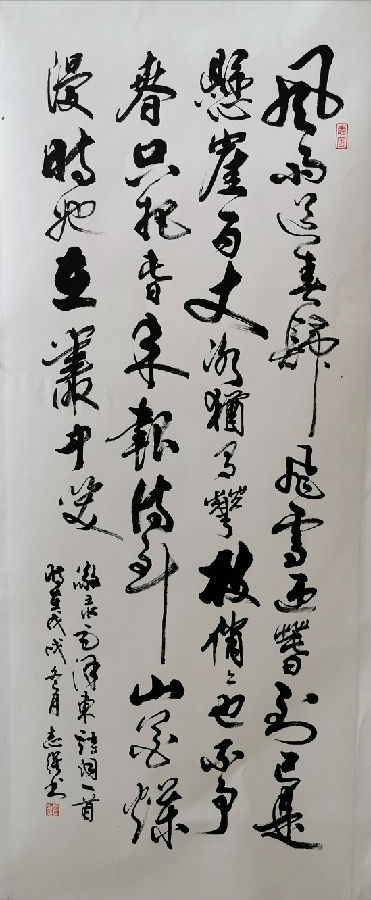 風雨送春歸飛雪迎春到已是
懸崖百丈冰猶有花枝俏〻也不爭
春只把春來報待到山花爛
漫時她在叢中笑
敬录毛澤東詩詞一首
時在戊戌冬月志书